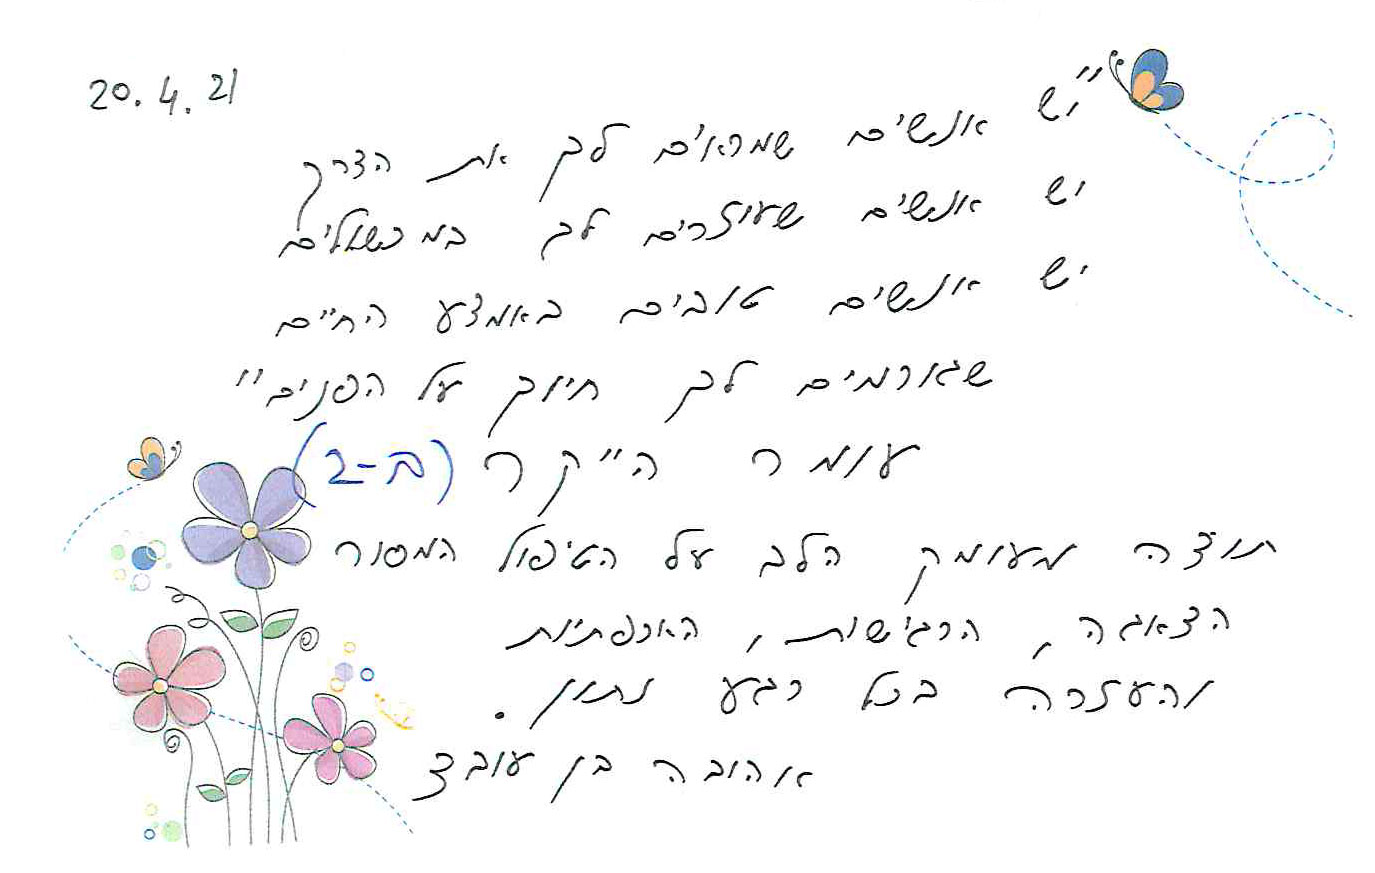 20.4.21
"יש אנשים שמראים לך את הדרך
יש אנשים שעוזרים לך במכשולים
יש אנשים טובים באמצע החיים
שגורמים לך חיוך על הפנים"
עומר היקר (ב-2)
תודה מעומק הלב על הטיפול המסור
הדאגה, הרגישות, האכפתיות
והעזרה בכל רגע נתון.
אהובה בן עובד